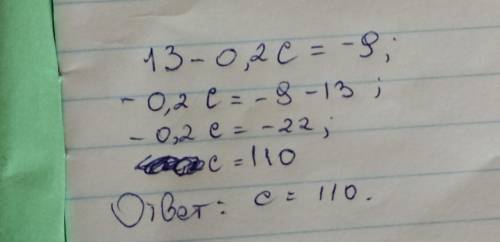 13 - 0,2 c = -9;
- 0,2 c = -9 - 13 ;
- 0,2 c = -22;
c = 110
Ответ: c = 110.